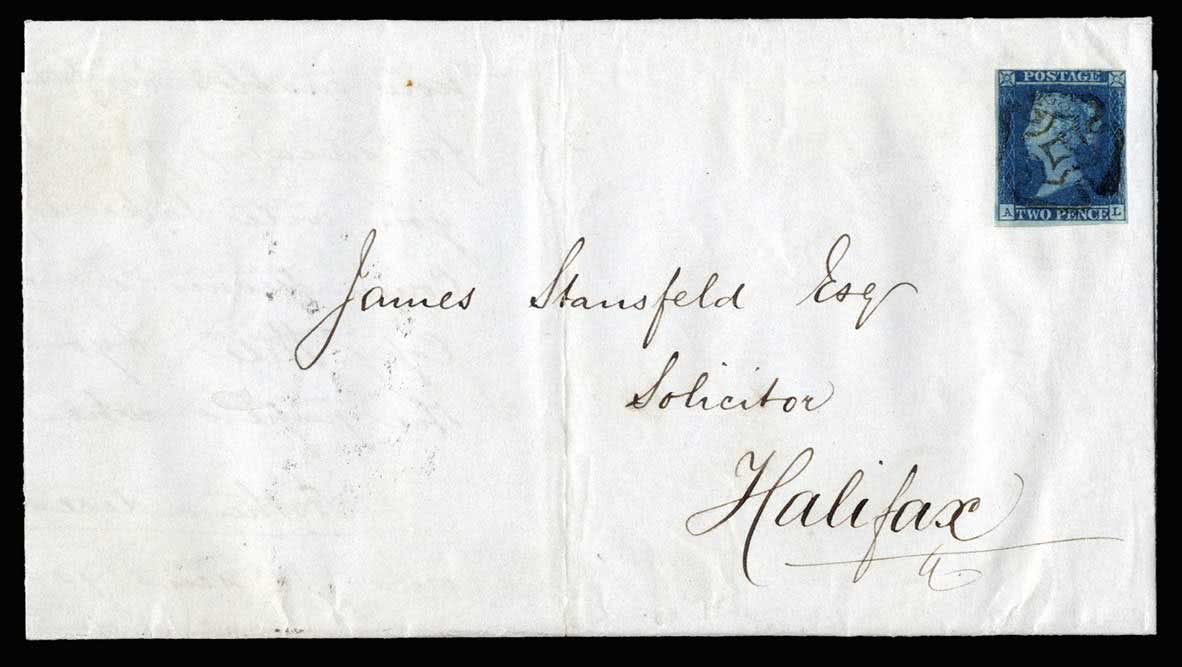 POSTAGE
A TWO PENCE L
James Stansfeld Esq
Solicitor
Halifax